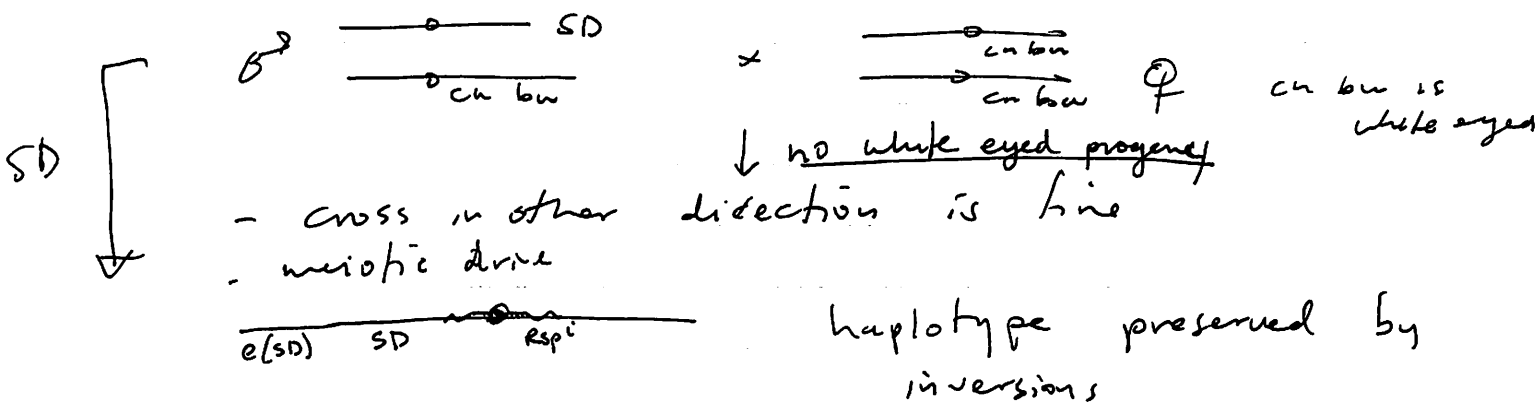 ♂ SD
cn bw
SD
×
cn bw
cn bw ♀
cn bw is
white eyed
↓ no white eyed progeny
- cross in other direction is fine
- meiotic drive
e(SD) SD Rspⁱ
haplotype preserved by
inversions